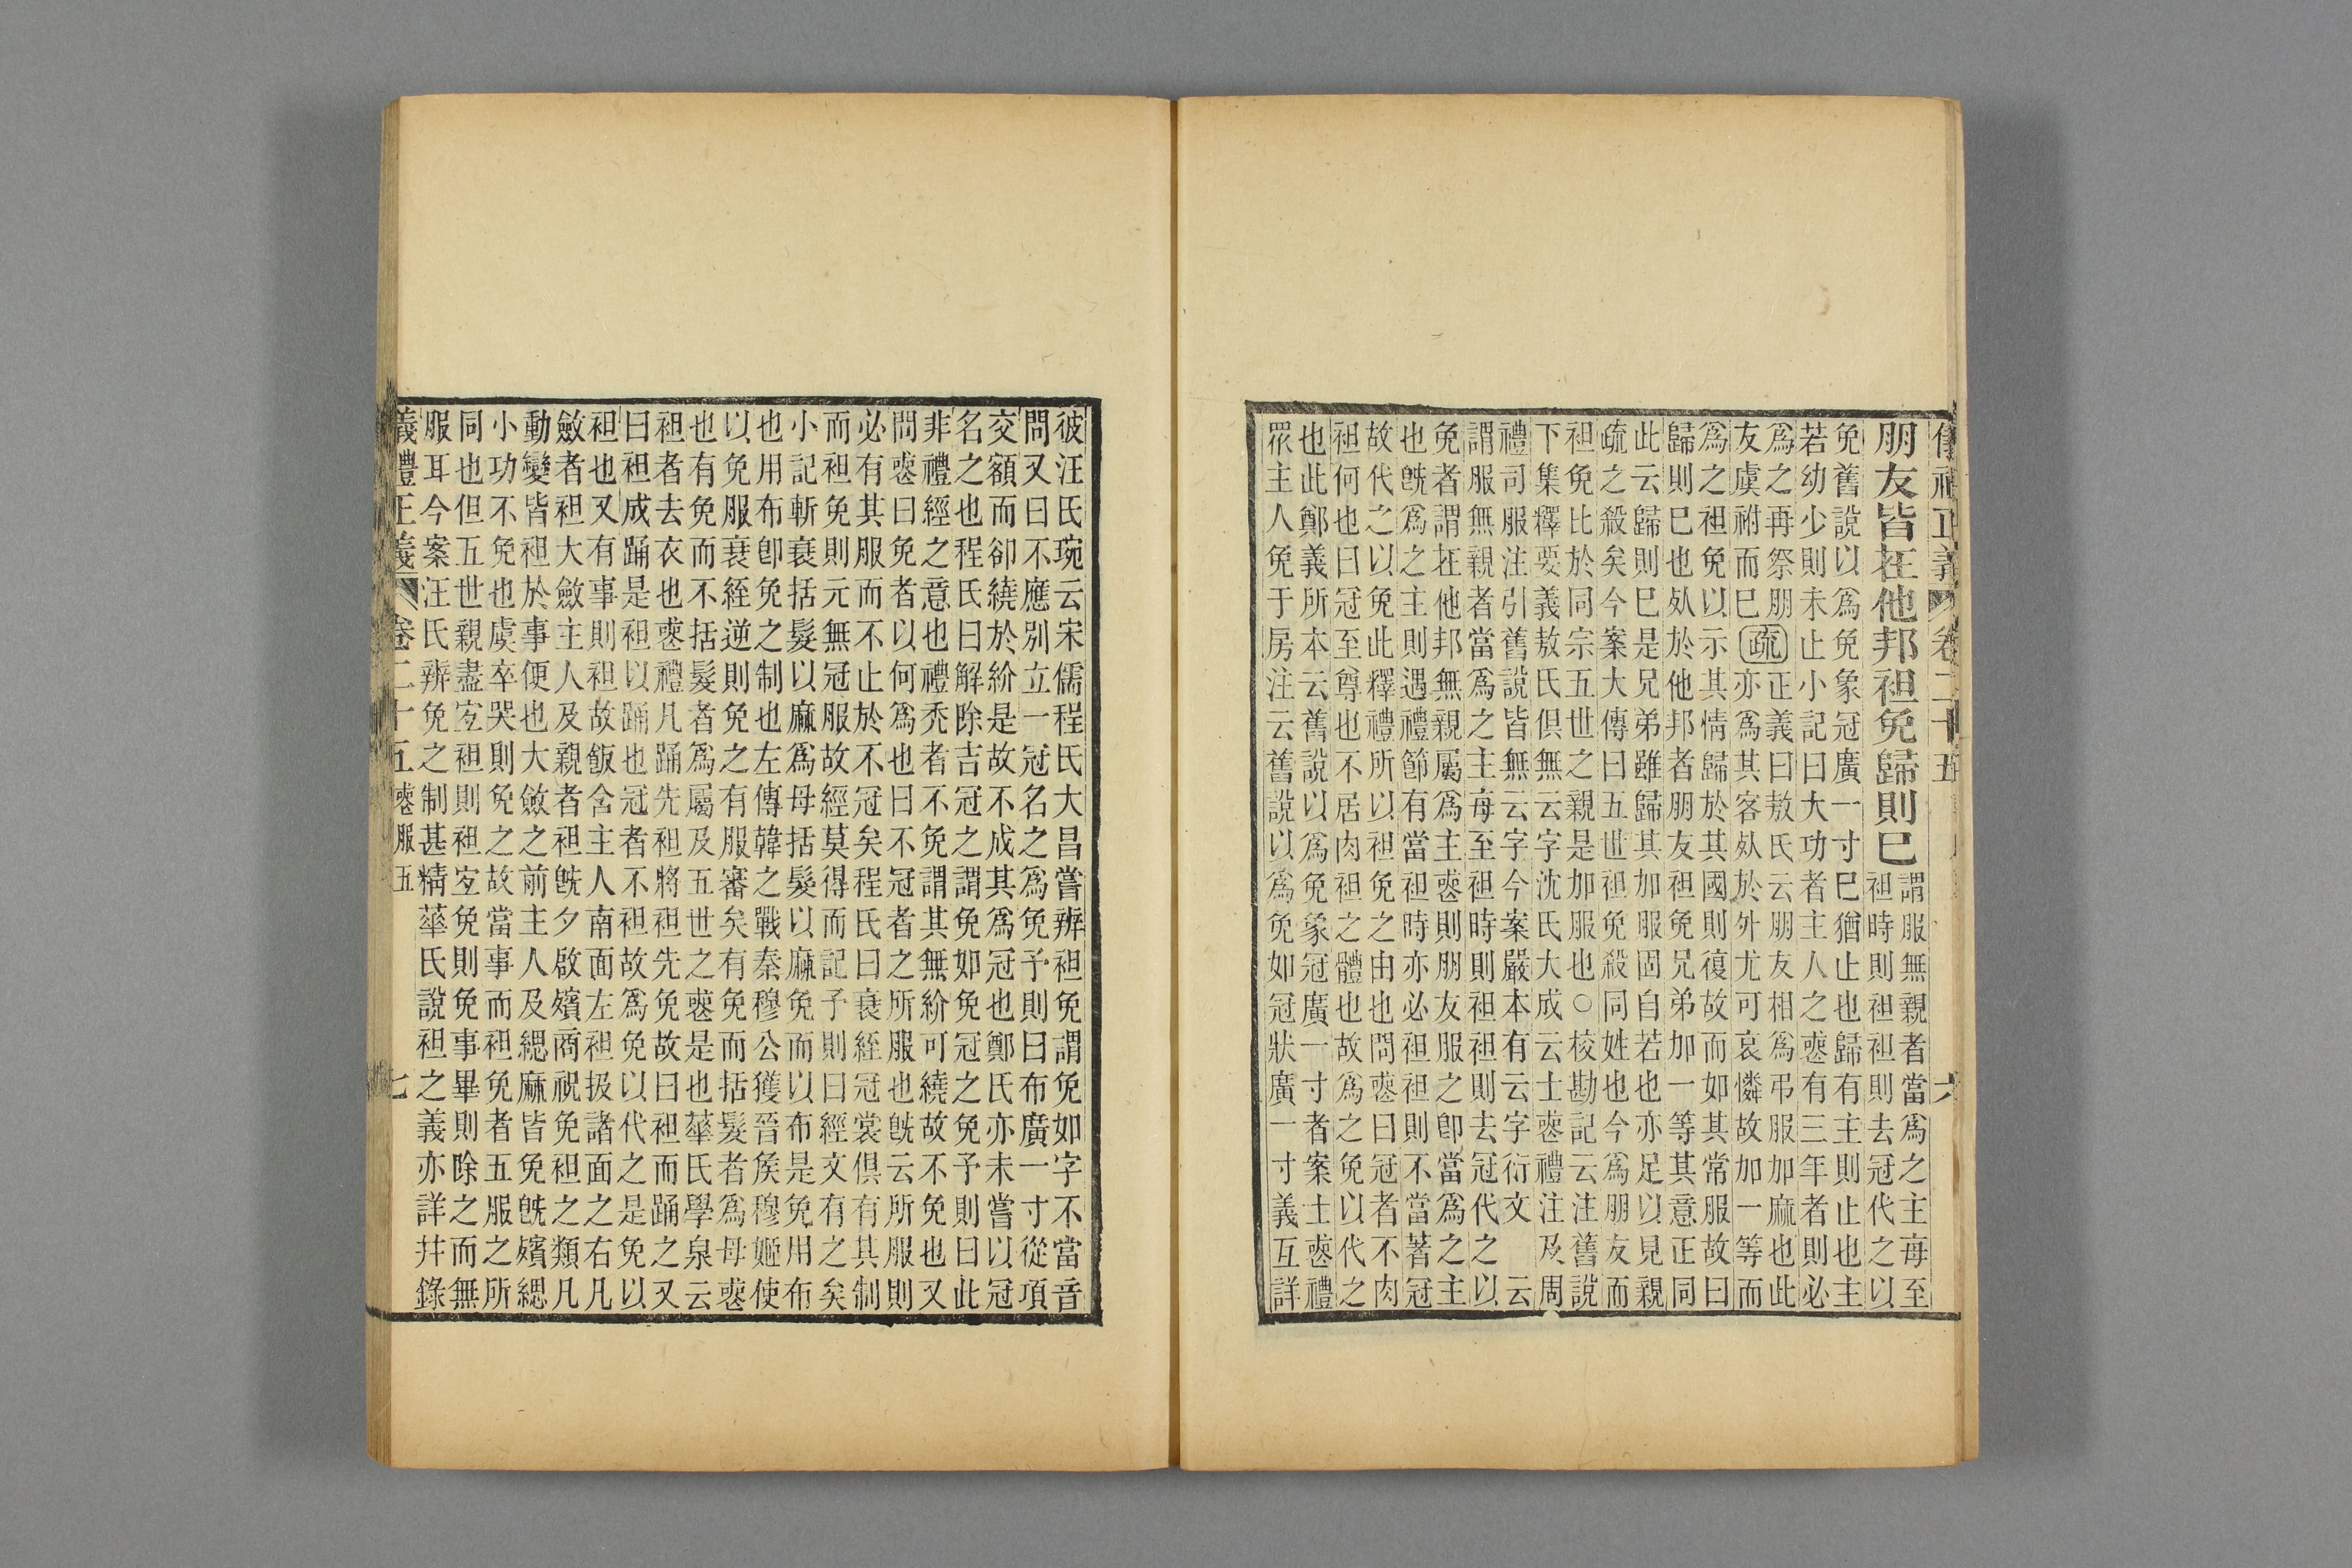 儀禮正義 卷二十五 六
朋友皆在他邦袒免歸則已謂服無親者當爲之主每至
袒時則袒袒則去冠代之以
免舊說以爲免象冠廣一寸已猶止也歸有主則止也主
若幼少則未止小記曰大功者主人之喪有三年者則必
爲之再祭朋
友虞祔而已疏正義曰敖氏云朋友相爲弔服加麻也此
亦爲其客死於外尤可哀憐故加一等而
爲之袒免以示其情歸於其國則復故而如其常服故曰
歸則已也死於他邦者朋友袒免兄弟加一等其意正同
此云歸則已是兄弟雖歸其加服固自若也亦足以見親
疏之殺矣今案大傳曰五世袒免殺同姓也今爲朋友而
袒免比於同宗五世之親是加服也○校勘記云注舊說
下集釋要義敖氏俱無云字沈氏大成云士喪禮注及周
禮司服注引舊說皆無云字今案嚴本有云字衍文 云
謂服無親者當爲之主每至袒時則袒袒則去冠代之以
免者謂在他邦無親屬爲主喪則朋友服之卽當爲之主
也旣爲之主則遇禮節有當袒時亦必袒袒則不當著冠
故代之以免此釋禮所以袒免之由也問喪曰冠者不肉
袒何也曰冠至尊也不居肉袒之體也故爲之免以代之
也此鄭義所本云舊說以爲免象冠廣一寸者案士喪禮
眾主人免于房注云舊說以爲免如冠狀廣一寸義互詳
彼汪氏琬云宋儒程氏大昌嘗辨袒免謂免如字不當音
問又曰不應別立一冠名之爲免予則曰布廣一寸從項
交額而卻繞於紒是故不成其爲冠也鄭氏亦未嘗以冠
名之也程氏曰解除吉冠之謂免如免冠之免予則曰此
非禮經之意也禮禿者不免謂其無紒可繞故不免也又
問喪曰免者以何爲也曰不冠者之所服也旣云所服則
必有其服而不止於不冠矣程氏曰衰絰冠裳俱有其制
而袒免則元無冠服故經莫得而記予則曰經文有之矣
小記斬衰括髮以麻爲母括髮以麻免而以布是免用布
也用布卽免之制也左傳韓之戰秦穆公獲晉侯穆姬使
以免服衰絰逆則免之有服審矣有免而括髮者爲母喪
也有免而不括髮者爲屬及五世之喪是也蕐氏學泉云
袒者去衣也喪禮凡踊先袒將袒先免故曰袒而踊之又
曰袒成踊是袒以踊也冠者不袒故爲免以代之是免以
袒也又有事則袒故飯含主人南面左袒扱諸面之右凡
斂者袒大斂主人及親者袒旣夕啟殯商祝免袒之類凡
動變皆袒於事便也大斂之前主人及緦麻皆免旣殯緦
小功不免也虞卒哭則免之故當事而袒免者五服之所
同也但五世親盡宜袒則袒宜免則免事畢則除之而無
服耳今案汪氏辨免之制甚精蕐氏說袒之義亦詳并錄
義禮正義 卷二十五 喪服五 七